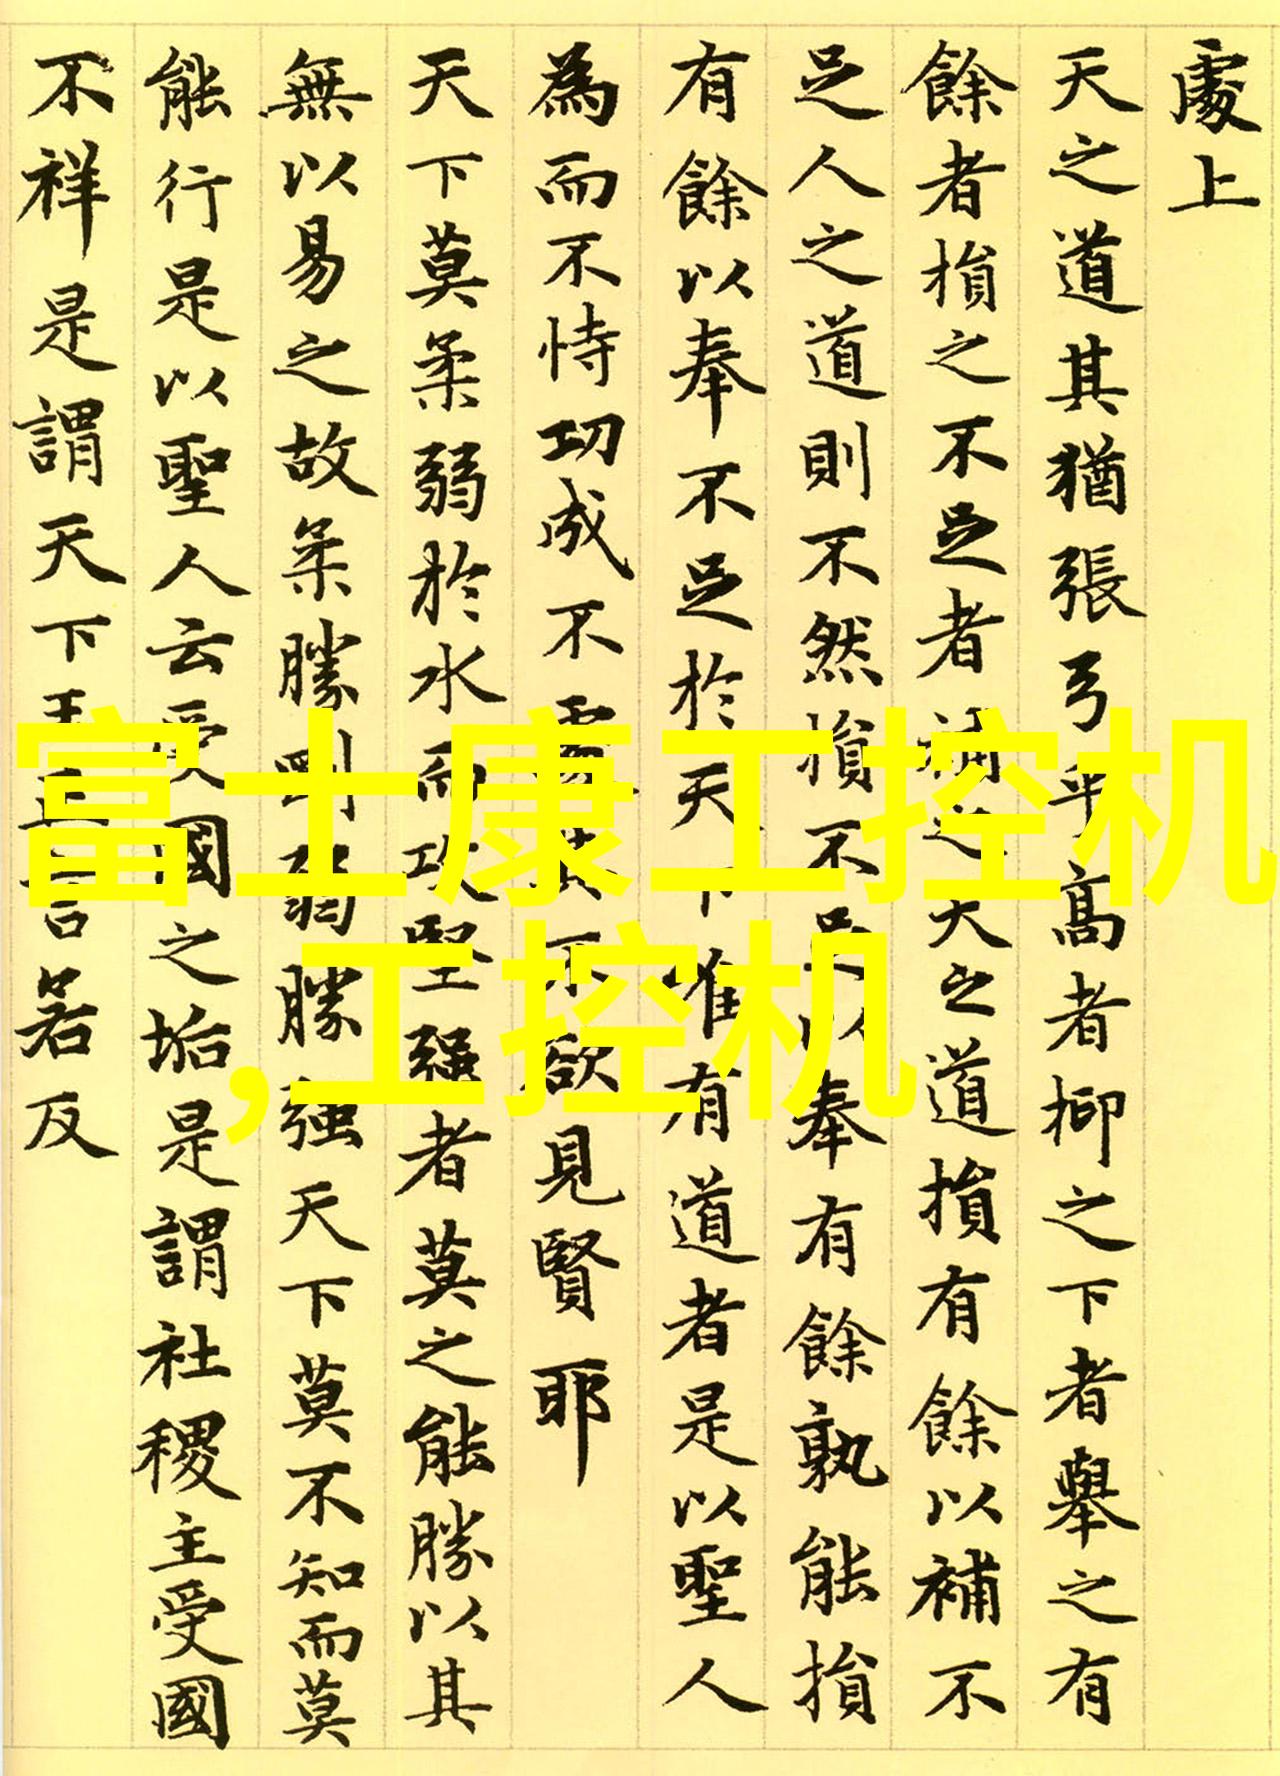 處上
天之道其猶張弓乎高者抑之下者舉之有
餘者損之不足者補之天之道損有餘以補不
足人之道則不然損不足以奉有餘孰能損
有餘以奉不足於天下唯有道者是以聖人
為而不恃功成不處其不欲見賢耶
天下莫柔弱於水而攻堅强者莫之能勝以其
無以易之故柔勝剛弱勝强天下莫不知而莫
能行是以聖人云受國之垢是謂社稷主受國
不祥是謂天下王正言若反
富士康工控机
,工控机